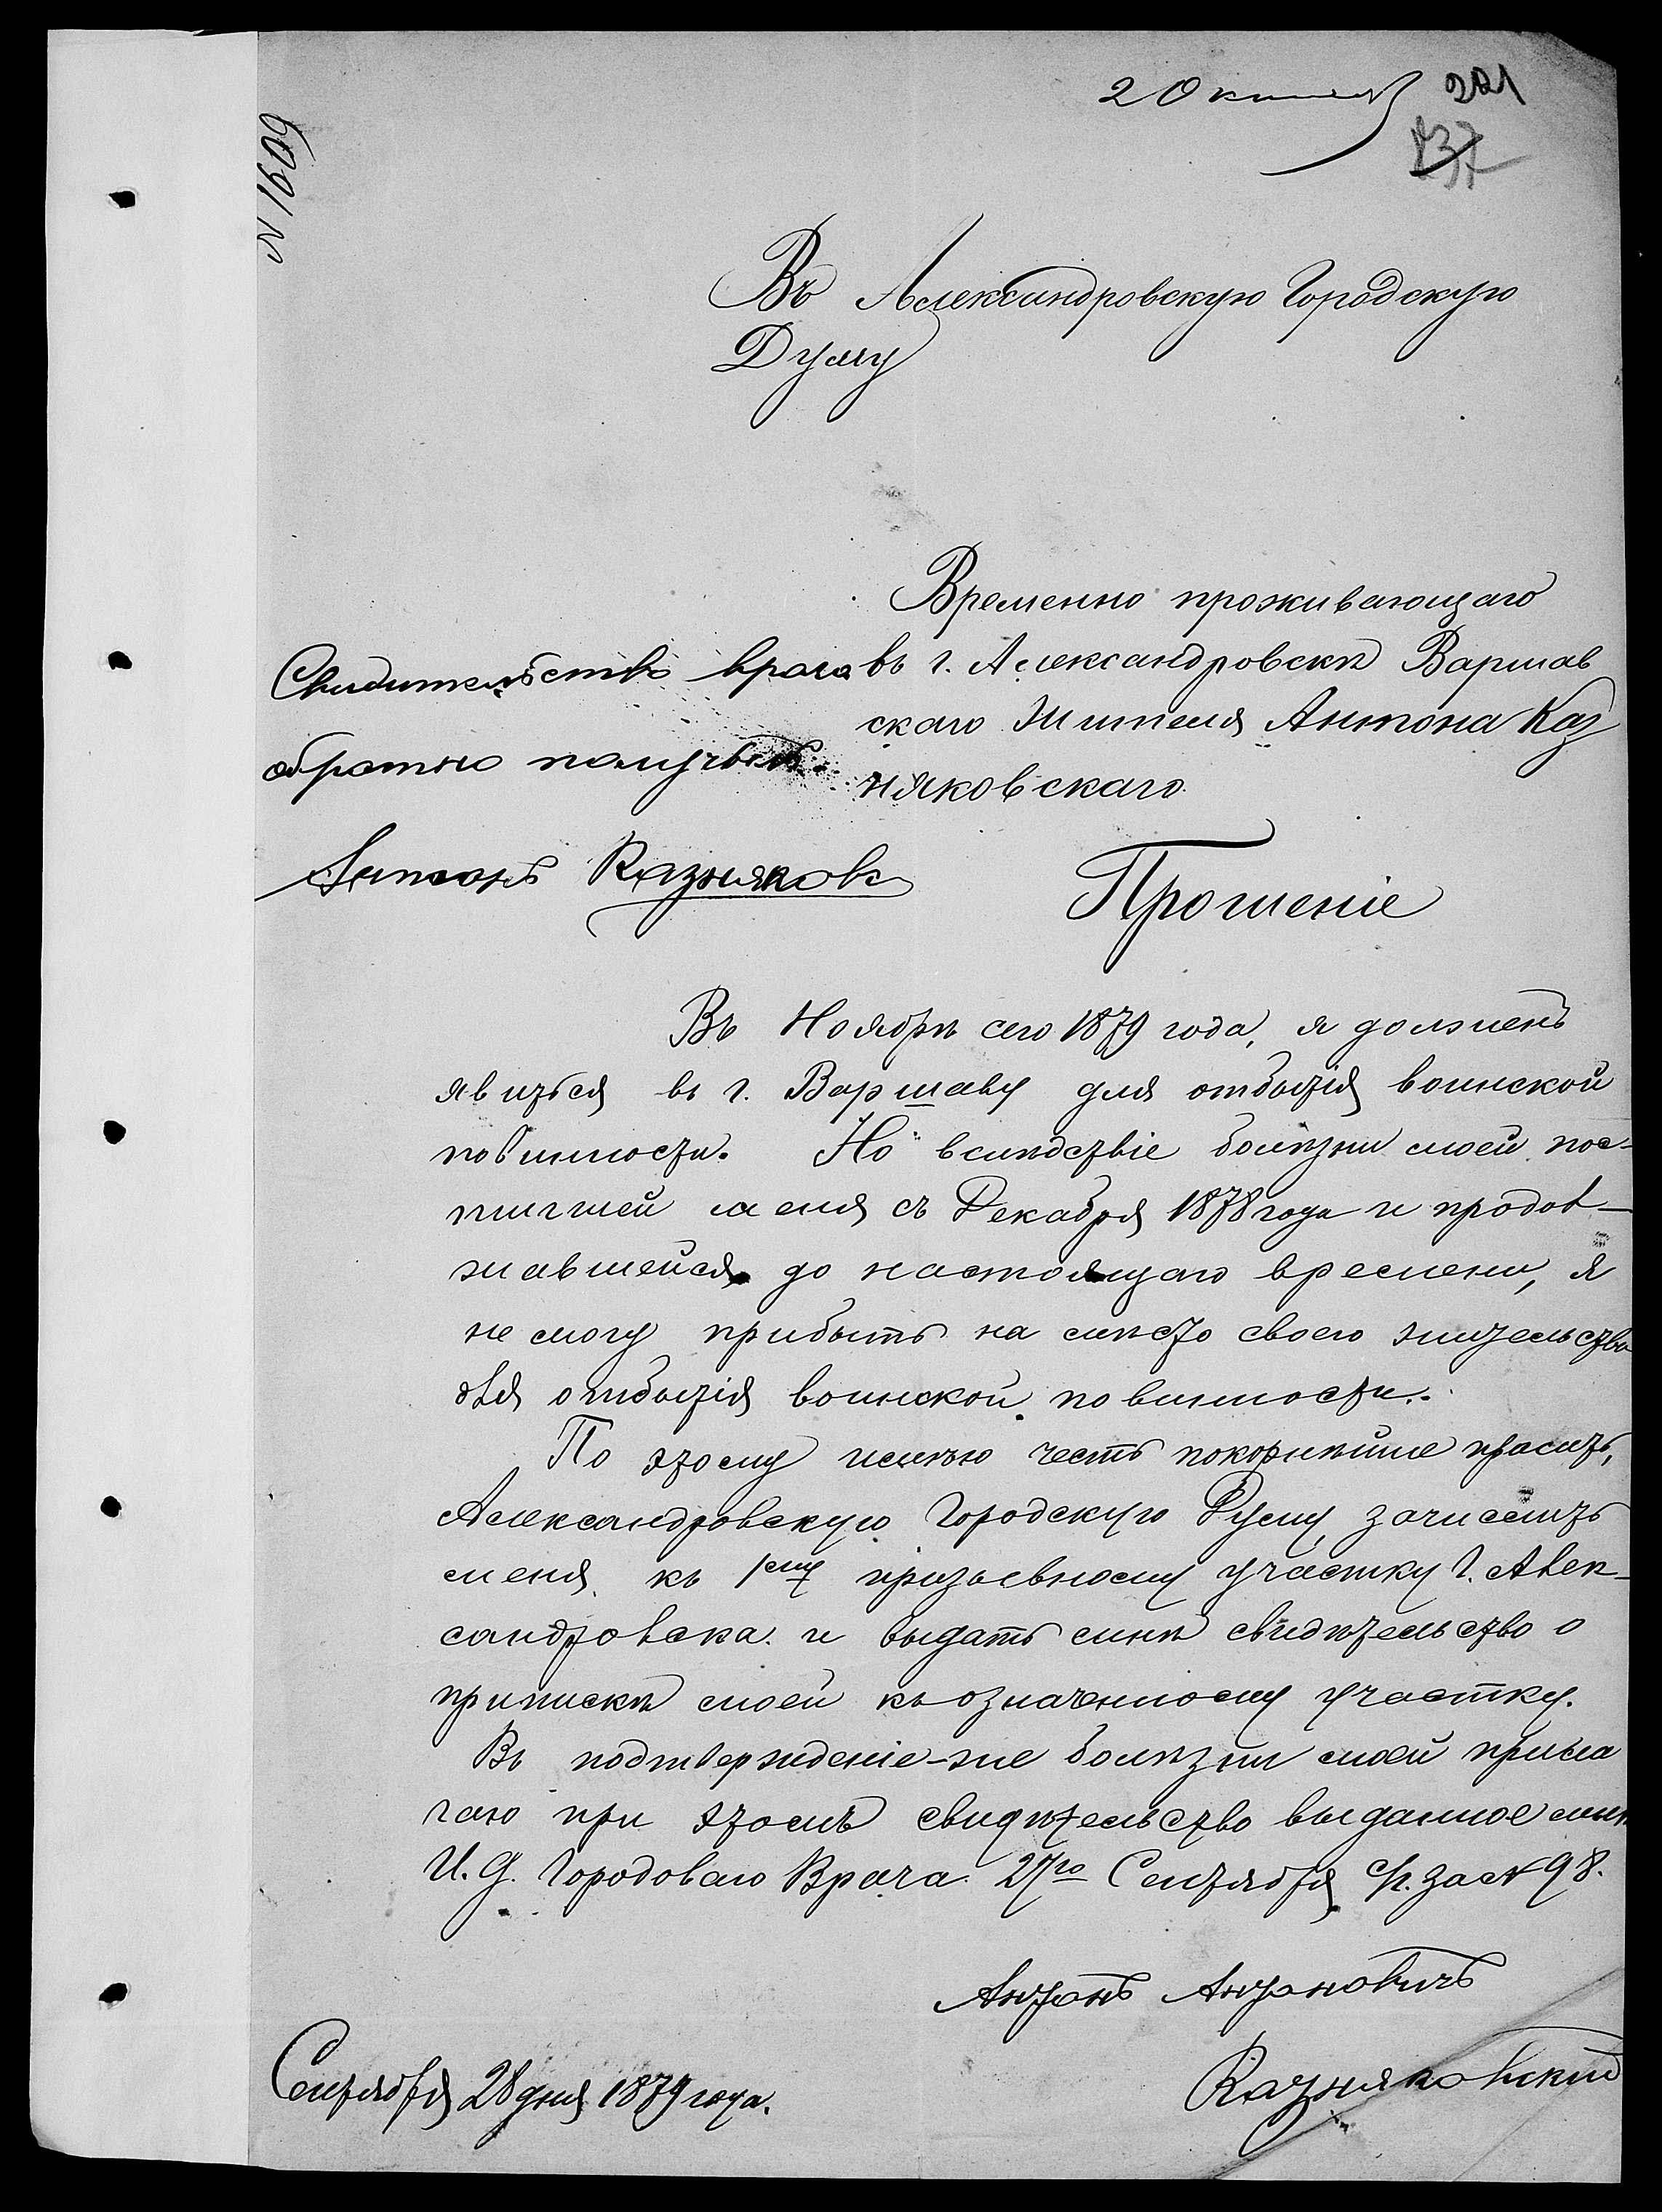 2 Октября 221
137
N 1609
Въ Александровскую Городскую
Думу
Временно проживающаго
въ г. Александровскѣ Варшав
скаго Жителя Антона Каз
няковскаго
Свидительство врача
обратно получилъ.
Антонъ Казняковс
Прошеніе
Въ Ноябрѣ сего 1879 года, я долженъ
явиться въ г. Варшаву для отбытія воинской
повинности. Но вслѣдствіе болѣзни моей пос-
тигшей меня съ Декабря 1878 года и продол-
жавшейся до настоящаго времени, я
не могу прибыть на мѣсто своего жительства
для отбытія воинской повинности.
По этому имѣю честь покорнѣйше просить,
Александровскую Городскую Думу, зачислить
меня къ 1му призывному участку г. Алек-
сандровска и выдать мнѣ свидѣтельство о
припискѣ моей къ означенному участку.
Въ подтвержденіе-же болѣзни моей прила
гаю при этомъ свидѣтельство выданное мнѣ
И. Д. Городоваго Врача 27го Сентября с/г. за № 98.
Антонъ Антоновичъ
Казняковский
Сентября 28 дня 1879 года.